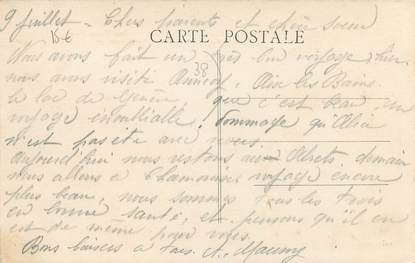 9 juillet - Chers parents et chère soeur
15 €
CARTE POSTALE
Nous avons fait un très bon voyage, hier
38
nous avons visité Annecy, Aix les Bains
le lac de que c'est beau, un
voyage inoubliable! Dommage qu'Alice
n'est pas été avec nous.
aujourd'hui nous restons aux demain
nous allons à Chamonix voyage encore
plus beau, nous sommes tous les trois
en bonne santé, et pensons qu'il en
est de même pour vous.
Bons baisers à tous